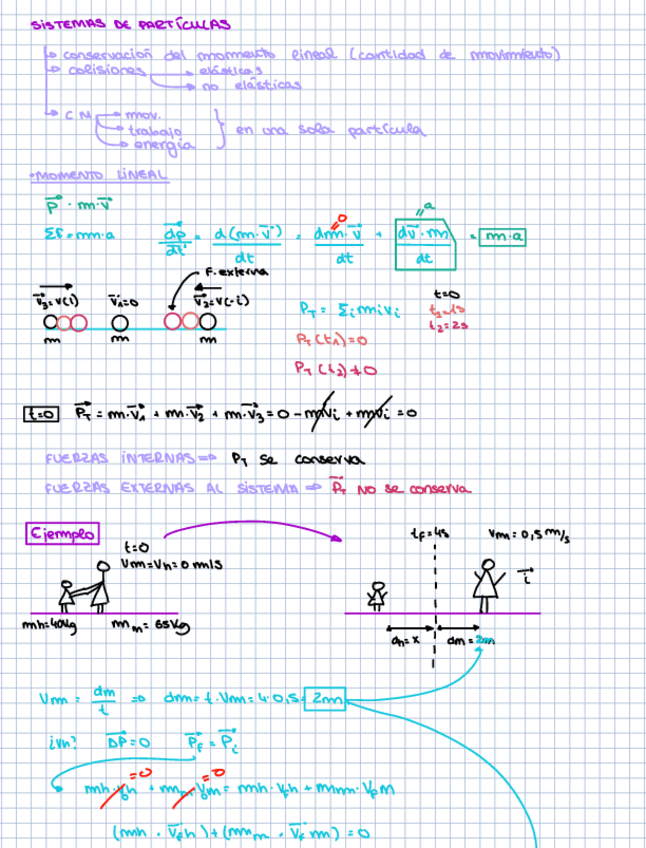 SISTEMAS DE PARTÍCULAS
↳ conservación del momento lineal (cantidad de movimiento)
↳ colisiones → elásticas
→ no elásticas
↳ CM → mov.
→ trabajo
→ energía
} en una sola partícula
•MOMENTO LINEAL
p⃗ · m·v⃗
Σf=m·a dp⃗/dt = d(m·v⃗)/dt = dm·v⃗/dt + dv⃗·m/dt = m·a
0
a
F. externa
v⃗₃=v(i) v⃗₁=0 v⃗₂=v(-i)
m m m
t=0
P_T = Σᵢmᵢvᵢ t₁=1s
t₂=2s
P_T(t₁)=0
P_T(t₂)≠0
t=0 P⃗_T = m·v⃗₁ + m·v⃗₂ + m·v⃗₃ = 0 - mvi + mvi = 0
FUERZAS INTERNAS ⇒ P_T se conserva
FUERZAS EXTERNAS AL SISTEMA ⇒ P⃗_T NO se conserva
Ejemplo
t=0
Vm=Vh=0 m/s
mh=40kg m_m= 65kg
t_f=4s Vm=0,5m/s
i⃗
dh=x dm=2m
Vm = dm/t ⇒ dm= t·Vm= 4·0,5= 2m
¿vh? ΔP⃗=0 P⃗_f=P⃗_i
=0 =0
mh·v₀h + m_m·v₀m = mh·v_fh + mm·v_fm
(mh · V⃗_fh)+(m_m · V⃗_fm) = 0